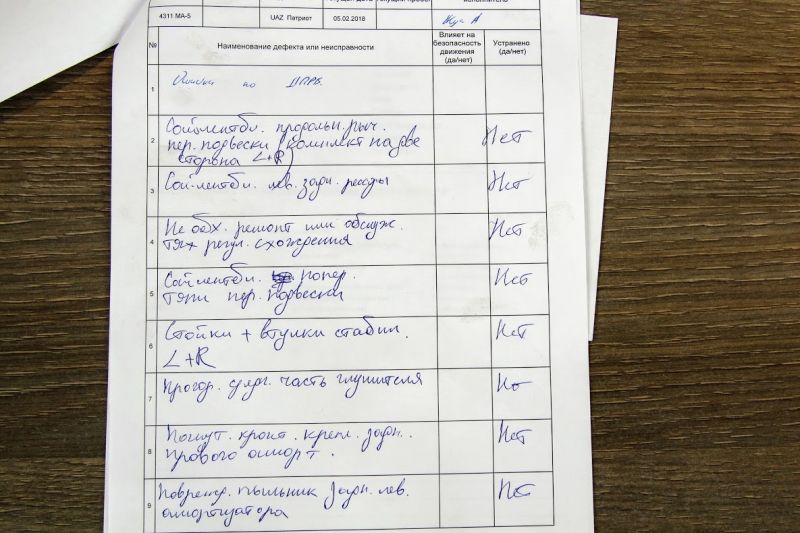 исполнитель
4311 МА-5 UAZ Патриот 05.02.2018
№ Наименование дефекта или неисправности Влияет на безопасность движения (да/нет) Устранено (да/нет)
1 по
2 Сайлентбл. продольн. рыч.
пер. подвески (комплект на две Нет
сторона L+R)
3 Сайлентбл. лев. задн. рессоры Нет
4 Необх. ремонт или обслуж. Нет
тяг регул. схождения
5 Сайлентбл. попер. Нет
тяги пер. подвески
6 Стойки + втулки стабил. Нет
L+R
7 Прогор. часть глушителя Нет
8 Погнут. кронт. крепл. задн. Нет
правого аморт.
9 Поврежд. пыльник задн. лев. Нет
амортизатора